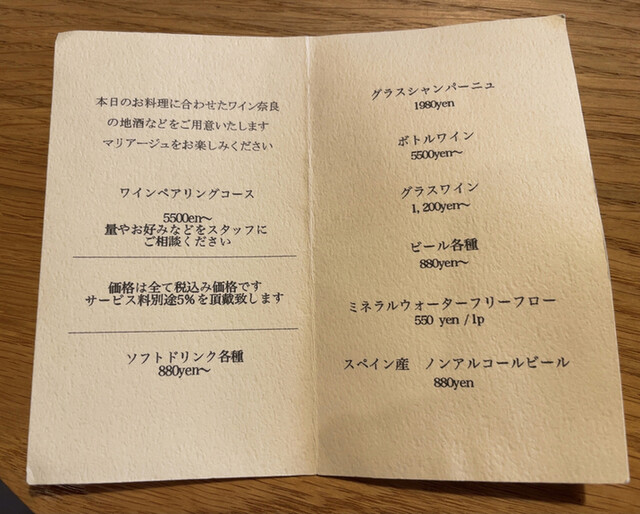 本日のお料理に合わせたワイン奈良
の地酒などをご用意いたします
マリアージュをお楽しみください
ワインペアリングコース
5500en～
量やお好みなどをスタッフに
ご相談ください
価格は全て税込み価格です
サービス料別途5%を頂戴致します
ソフトドリンク各種
880yen～
グラスシャンパーニュ
1980yen
ボトルワイン
5500yen～
グラスワイン
1,200yen～
ビール各種
880yen～
ミネラルウォーターフリーフロー
550 yen /1p
スペイン産　ノンアルコールビール
880yen